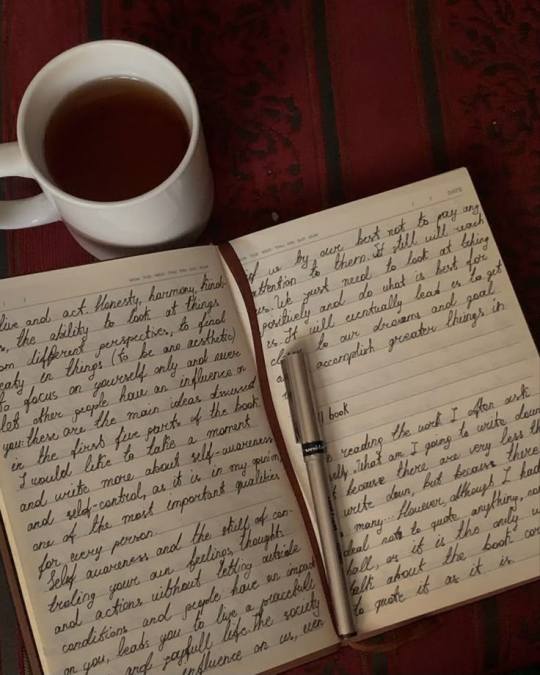 live and act. Honesty, harmony, kind-
the ability to look at things
om different perspectives, to find
eauty in things (to be an aesthetic)
to focus on yourself only and never
let other people have an influence on
you. these are the main ideas discussed
in the first few parts of the book.
I would like to take a moment
and write more about self-awareness
and self-control, as it is in my opinion
one of the most important qualities
for every person.
Self awareness and the skill of con-
troling your own feelings, thoughts
and actions without letting outside
conditions and people have an impact
on you, leads you to live a peacefull
and joyfull life. The society
influence on us, even
DATE
us by our best not to pay any
attention to them. It still will reach
us. We just need to look at thing
positively and do what is best for
us. It will eventially lead us to get
to our dreams and goal
accomplish greater things in
book
reading the work I often
What am I going to write down
because there are very less th
write down, but because there
many... However, althougs I had
not to quote anything, no
or it is the only w
talk about the book con
to quote it as it is.